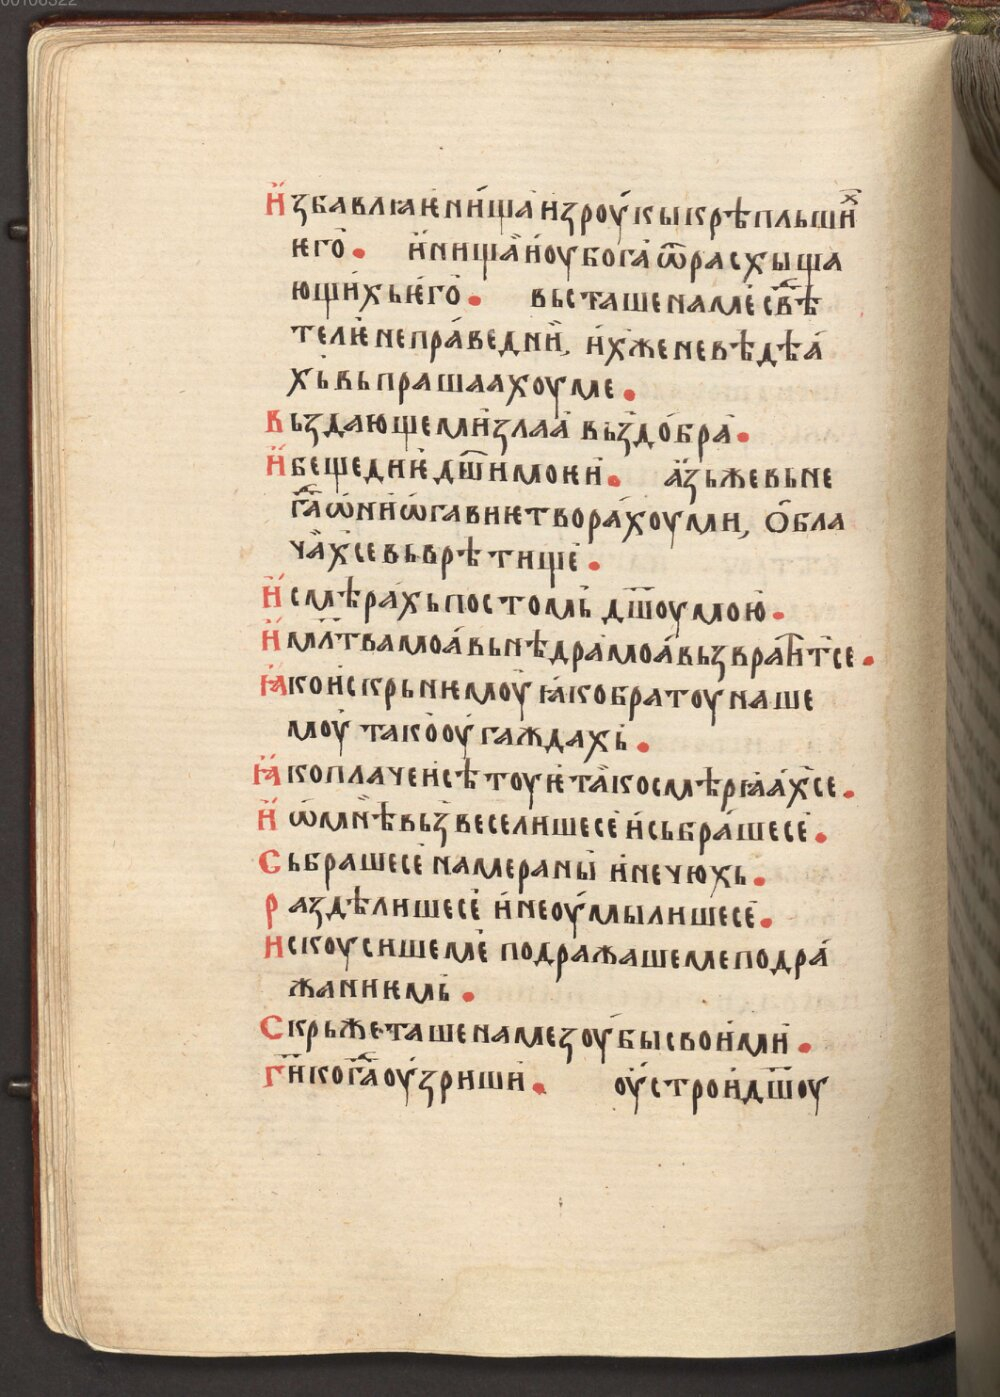 00106322
И҆збавлꙗѥ ни́ща и҆з роу́кы крѣпльши́иⷯ
ѥго̀ • и҆ ни́ща и҆ оу҆бога ѿ расхыща
ющи́хь ѥ҆го̀ • вьсташе на ме свⷣѣ
телѥ непра́ведни҆, и҆хже не вѣдѣа́
хь вьпрашаахоу ме •
Вьздающе ми ѕлаа вьз до́бра •
И҆ бещедиѥ дш҃и моѥи • а҆зь же вьнѥ
гⷣа ѡ҆ни ѡ҆гавиѥ твора́хоу ми, ѻ҆бла
ча́хсе вь врѣтище •
И҆ смѣра́хь постомь дш҃оу мою̀ •
И҆ мл҃тва моа́ вь нѣдра моа́ вьзвратⷮисе •
Ꙗ҆ко и҆скрьнѥмоу ꙗ҆ко братоу наше
моу̀ тако оу҆гаждахь •
Ꙗ҆ко плаче и҆ сѣтоуѥ тако смѣрꙗа́хсе •
И҆ ѡ҆ мнѣ вьзвеселишесе и҆ сьбра́шесе •
Сьбрашесе на ме раны̀ и҆ не чюхь •
Раздѣлишесе и҆ не оу҆мы́лишесе •
Искоусише ме подражаше ме подра́
жаниѥмь •
Скрьжеташе на ме зоу́бы свои́ми •
Гⷭ҇и когⷣа оу҆́зриши • оу҆строи дш҃оу